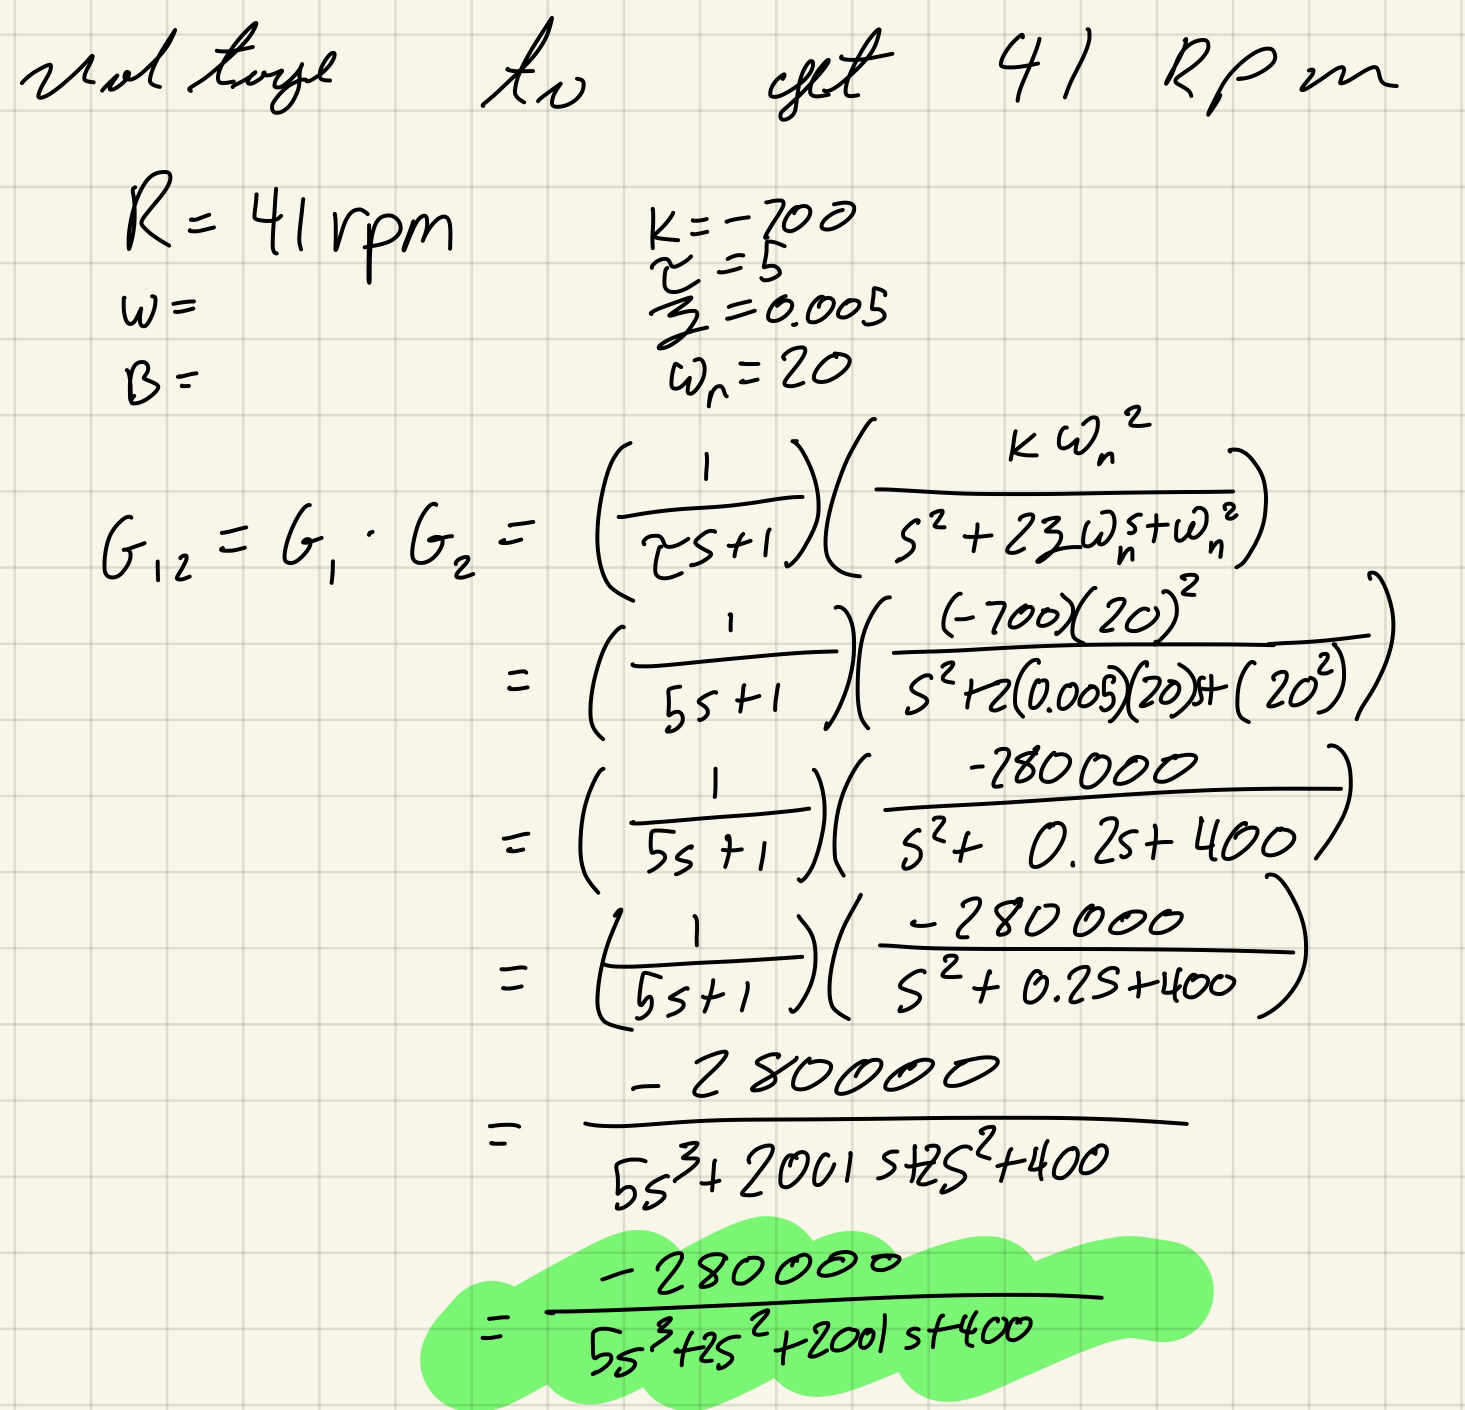 voltage to get 41 Rpm
R = 41 rpm
K = -700
τ = 5
ω =
ʒ = 0.005
B =
ω_n = 20
G_12 = G_1 · G_2 = (1/(τs+1)) (Kω_n^2/(s^2 + 2ʒω_n s + ω_n^2))
= (1/(5s+1)) ((-700)(20)^2/(s^2+2(0.005)(20)s+(20^2)))
= (1/(5s+1)) (-280000/(s^2+ 0.2s+ 400))
= (1/(5s+1)) (-280000/(s^2+ 0.2s+400))
= -280000/(5s^3+ 2001 s+2s^2+400)
= -280000/(5s^3+2s^2+2001 s+400)